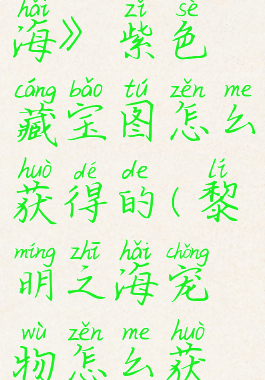 hǎi zǐ sè
海》 紫色
cáng bǎo tú zěn me
藏宝图怎么
huò dé de lí
获得的(黎
míng zhī hǎi chǒng
明之海宠
wù zěn me huò
物怎么获